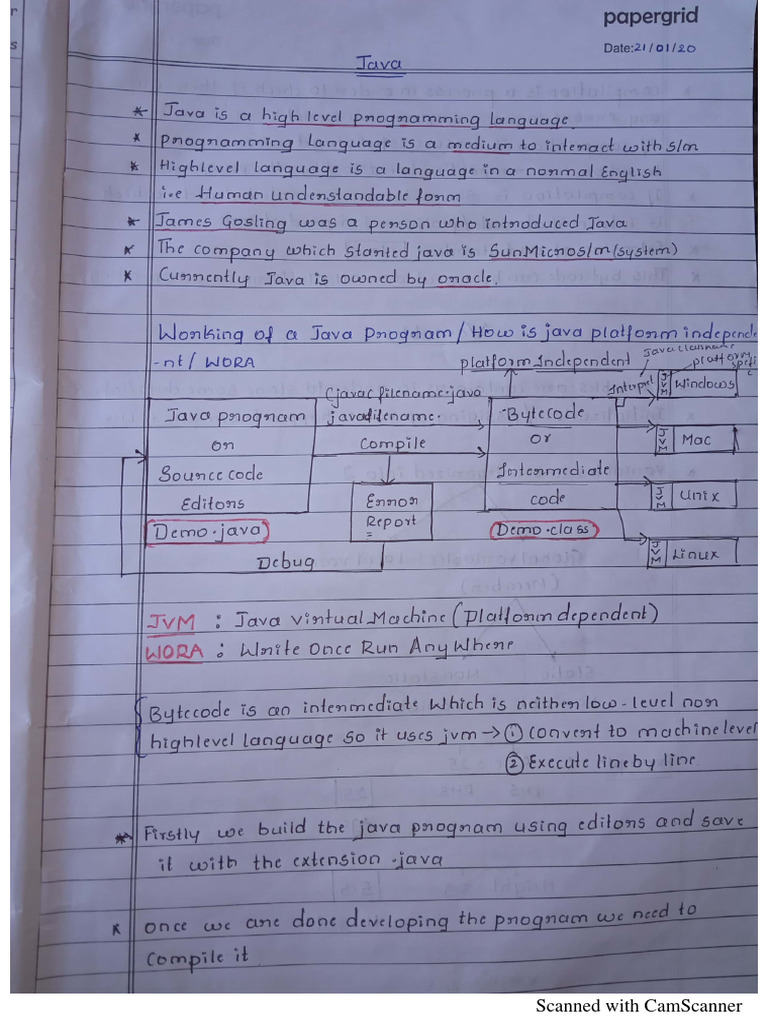 papergrid
Date: 21/01/20
Java
* Java is a high level programming language.
* programming language is a medium to interact with s/m
* Highlevel language is a language in a normal English
i.e Human understandable form
* James Gosling was a person who introduced Java
* The company which started java is SunMicros/m (system)
* Currently Java is owned by oracle.
Working of a Java Program / How is java platform independe
-nt / WORA
platform Independent
Java classname
platform
Interpret
JVM Windows
(javac filename.java
javafilename.
Java program
or
Source code
Editors
Compile
Bytecode
or
Intermediate
code
JVM Mac
JVM Unix
JVM Linux
Error
Report
Demo.java
Demo.class
Debug
JVM : Java Virtual Machine (Platform dependent)
WORA : Write Once Run Any Where
Bytecode is an intermediate which is neither low-level nor
highlevel language so it uses jvm → ① convert to machine level
② Execute line by line
* Firstly we build the java program using editors and save
it with the extension .java
* once we are done developing the program we need to
compile it
Scanned with CamScanner